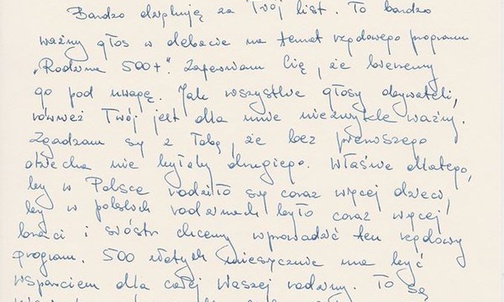 Bardzo dziękuję za Twój list. To bardzo
ważny głos w debacie na temat rządowego programu
„Rodzina 500+". Zapewniam Cię, że bierzemy
go pod uwagę. Jak wszystkie głosy obywateli,
również Twój jest dla mnie niezwykle ważny.
Zgadzam się z Tobą, że bez pierwszego
dziecka nie byłoby drugiego. Właśnie dlatego,
by w Polsce rodziło się coraz więcej dzieci,
by w polskich rodzinach było coraz więcej
braci i sióstr chcemy wprowadzić ten rządowy
program. 500 złotych miesięcznie ma być
wsparciem dla całej Waszej rodziny. To są